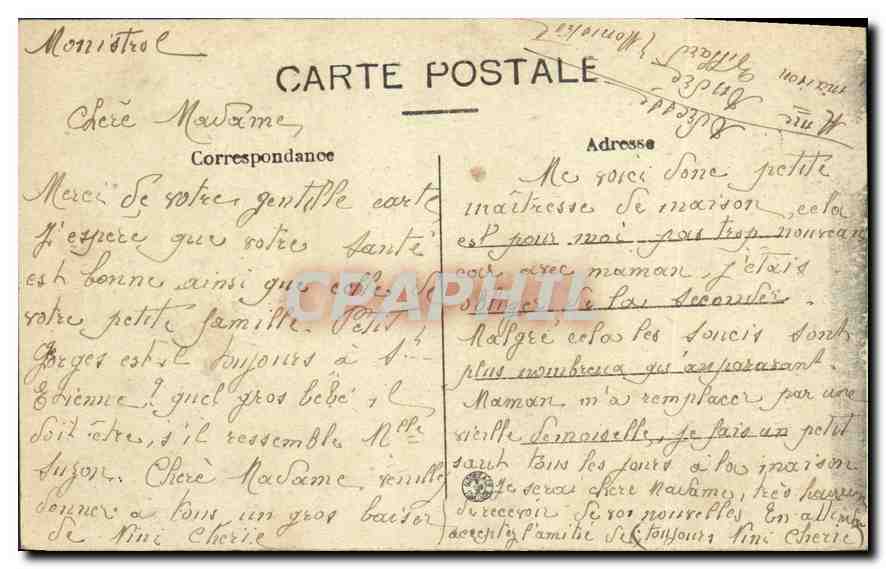 Monistrol
CARTE POSTALE
Mme
Andrée
maison
Monistrol
Chère Madame,
Correspondance
Merci de votre gentille carte
J'espère que votre santé
est bonne ainsi que celle de
votre petite famille. Petit
Gorges est-il toujours à St
Etienne ? quel gros bébé il
doit être, s'il ressemble Melle
Suzon. Cherè Madame veuillez
donner a tous un gros baiser
de Nini Cherie
Adresse
Me voici donc petite
maîtresse de maison, cela
est pour moi pas trop nouveau
car avec maman, j'étais
obliger de la seconder.
Malgré cela les soucis sont
plus nombreux qu'auparavant.
Maman m'a remplacer par une
vieille demoiselle, je fais un petit
saut tous les jours à la maison
Je serai chere Madame, très heureuse
de recevoir de vos nouvelles En attendant
acceptez l'amitié de (toujours Nini Cherie)
CPAPHIL